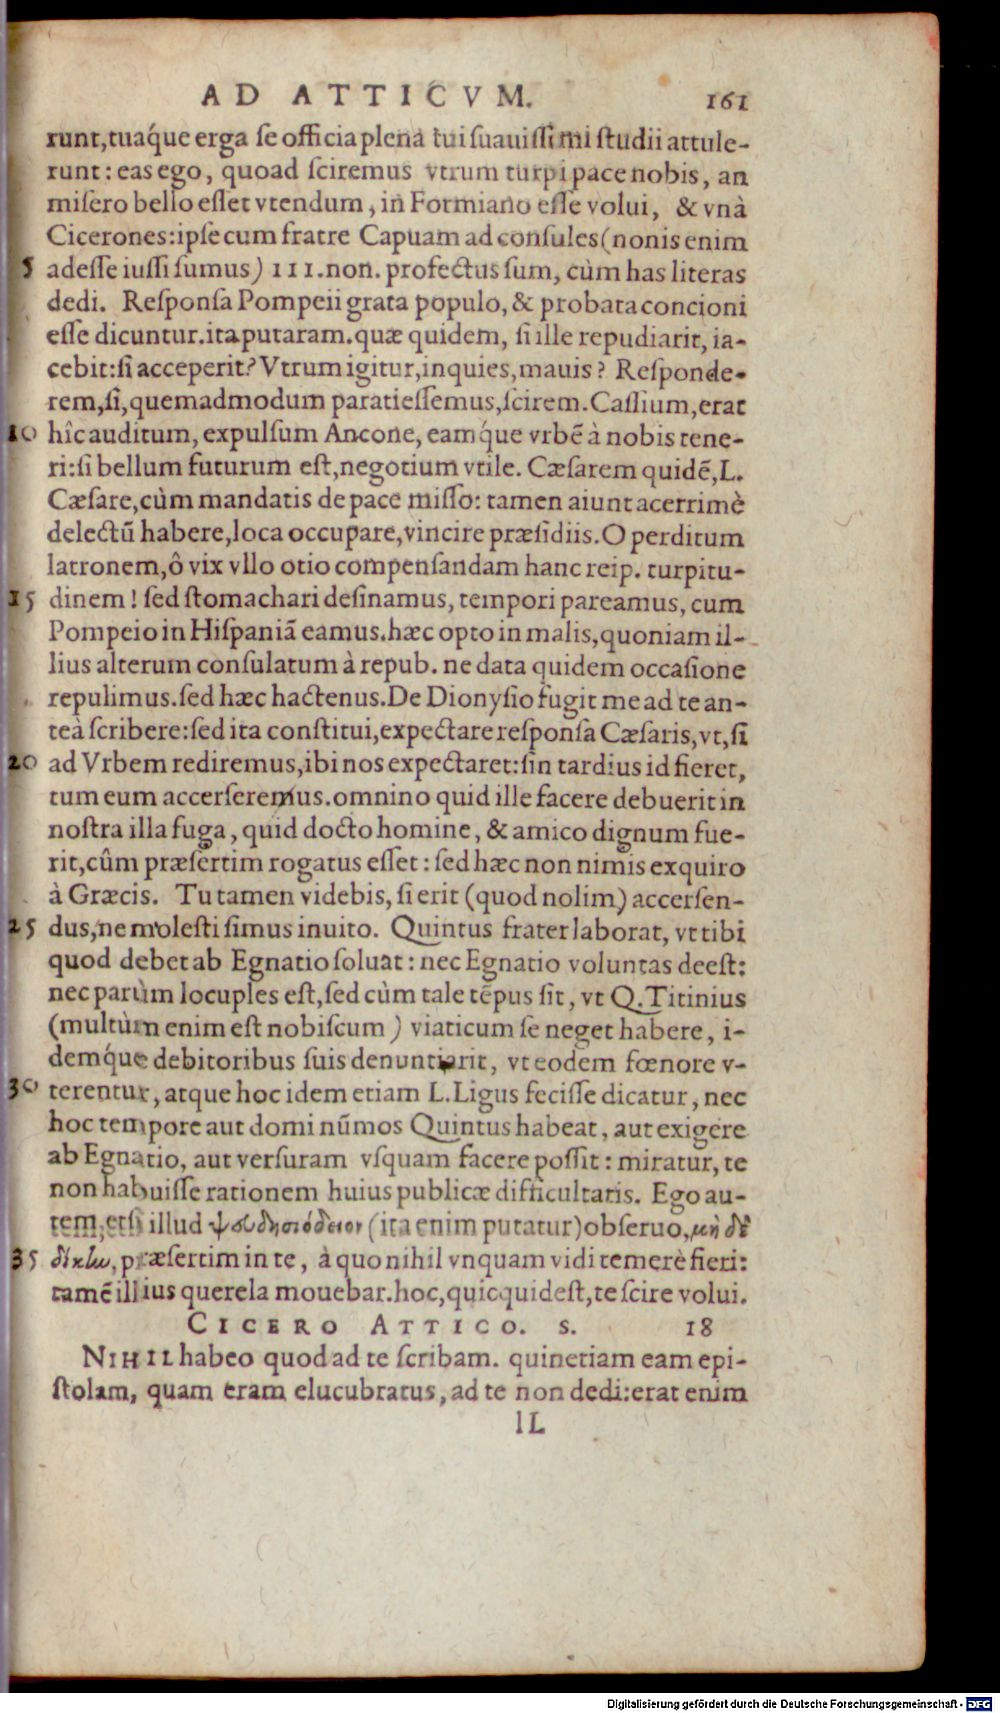 AD ATTICVM. 161
runt,tuáque erga ſe officia plena tui ſuauiſſimi ſtudii attule-
runt: eas ego, quoad ſciremus vtrum turpi pace nobis, an
miſero bello eſſet vtendum, in Formiano eſſe volui, & vnà
Cicerones: ipſe cum fratre Capuam ad conſules (nonis enim
5 adeſſe iuſſi ſumus) III. non. profectus ſum, cùm has literas
dedi. Reſponſa Pompeii grata populo, & probata concioni
eſſe dicuntur. ita putaram. quæ quidem, ſi ille repudiarit, ia-
cebit: ſi acceperit? Vtrum igitur, inquies, mauis? Reſponde-
rem, ſi, quemadmodum parati eſſemus, ſcirem. Caſſium, erat
10 hîc auditum, expulſum Ancone, eamq́ue vrbẽ à nobis tene-
ri: ſi bellum futurum eſt, negotium vtile. Cæſarem quidẽ, L.
Cæſare, cùm mandatis de pace miſſo: tamen aiunt acerrimè
delectũ habere, loca occupare, vincire præſidiis. O perditum
latronem, ô vix vllo otio compenſandam hanc reip. turpitu-
15 dinem! ſed ſtomachari deſinamus, tempori pareamus, cum
Pompeio in Hiſpaniã eamus. hæc opto in malis, quoniam il-
lius alterum conſulatum à repub. ne data quidem occaſione
repulimus. ſed hæc hactenus. De Dionyſio fugit me ad te an-
teà ſcribere: ſed ita conſtitui, expectare reſponſa Cæſaris, vt, ſi
20 ad Vrbem rediremus, ibi nos expectaret: ſin tardius id fieret,
tum eum accerſeremus. omnino quid ille facere debuerit in
noſtra illa fuga, quid docto homine, & amico dignum fue-
rit, cûm præſertim rogatus eſſet: ſed hæc non nimis exquiro
à Græcis. Tu tamen videbis, ſi erit (quod nolim) accerſen-
25 dus, ne moleſti ſimus inuito. Quintus frater laborat, vt tibi
quod debet ab Egnatio ſoluat: nec Egnatio voluntas deeſt:
nec parùm locuples eſt, ſed cùm tale tẽpus ſit, vt Q. Titinius
(multùm enim eſt nobiſcum) viaticum ſe neget habere, i-
demq́ue debitoribus ſuis denuntiarit, vt eodem fœnore v-
30 terentur, atque hoc idem etiam L. Ligus feciſſe dicatur, nec
hoc tempore aut domi nũmos Quintus habeat, aut exigere
ab Egnatio, aut verſuram vſquam facere poſſit: miratur, te
non habuiſſe rationem huius publicæ difficultatis. Ego au-
tem, etſi illud ψευδησιόδειον (ita enim putatur) obſeruo, μηδὲ
35 δίκην, præſertim in te, à quo nihil vnquam vidi temerè fieri:
tamẽ illius querela mouebar. hoc, quicquid eſt, te ſcire volui.
CICERO ATTICO. S. 18
NIHIL habeo quod ad te ſcribam. quinetiam eam epi-
ſtolam, quam eram elucubratus, ad te non dedi: erat enim
lL
Digitalisierung gefördert durch die Deutsche Forschungsgemeinschaft - DFG